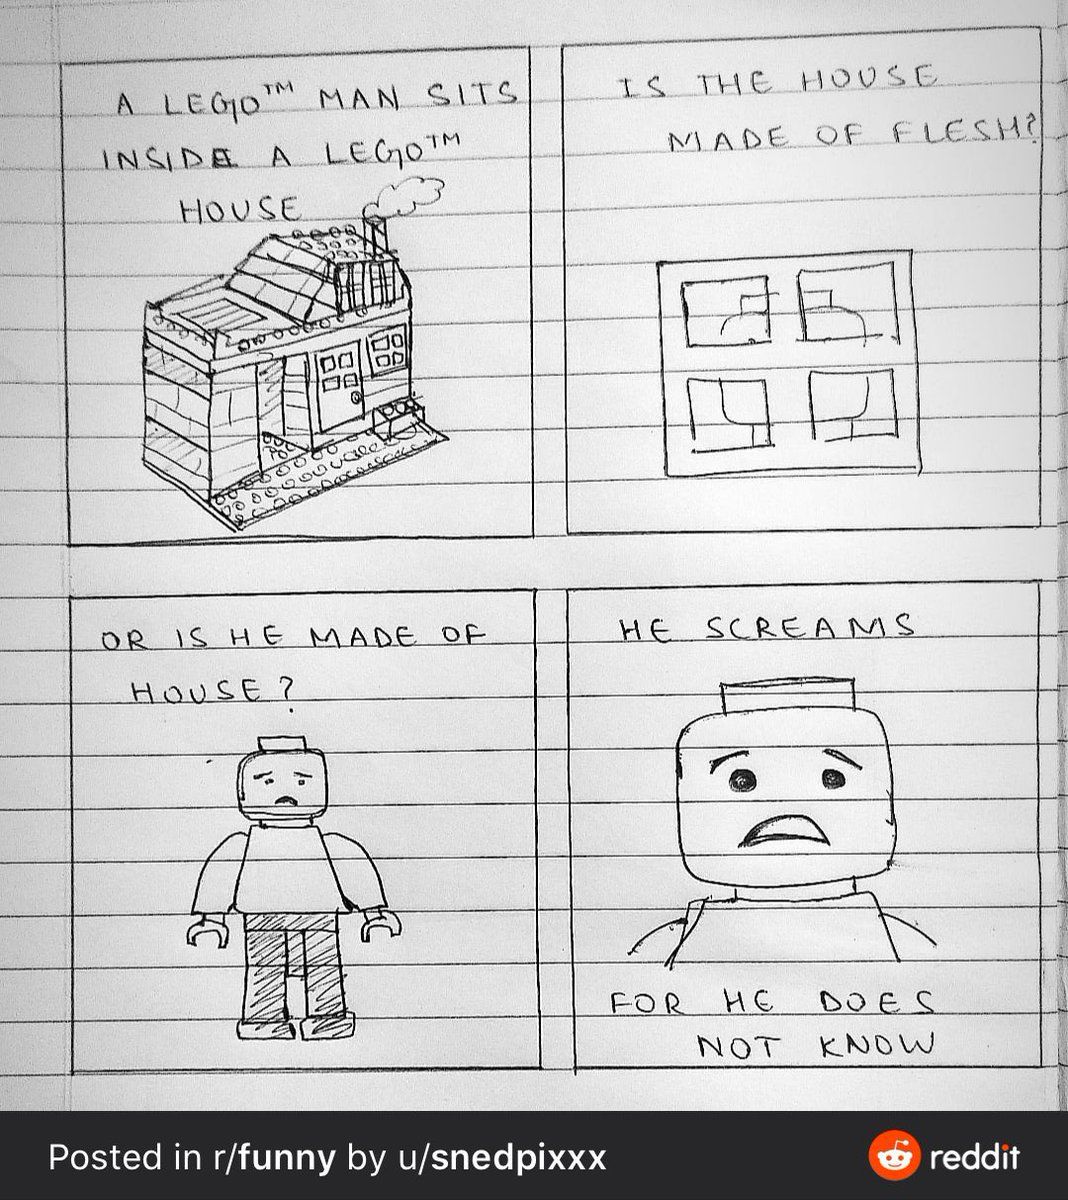 A LEGO™ MAN SITS
INSIDE A LEGO™
HOUSE
IS THE HOUSE
MADE OF FLESH?
OR IS HE MADE OF
HOUSE?
HE SCREAMS
FOR HE DOES
NOT KNOW
Posted in r/funny by u/snedpixxx
reddit